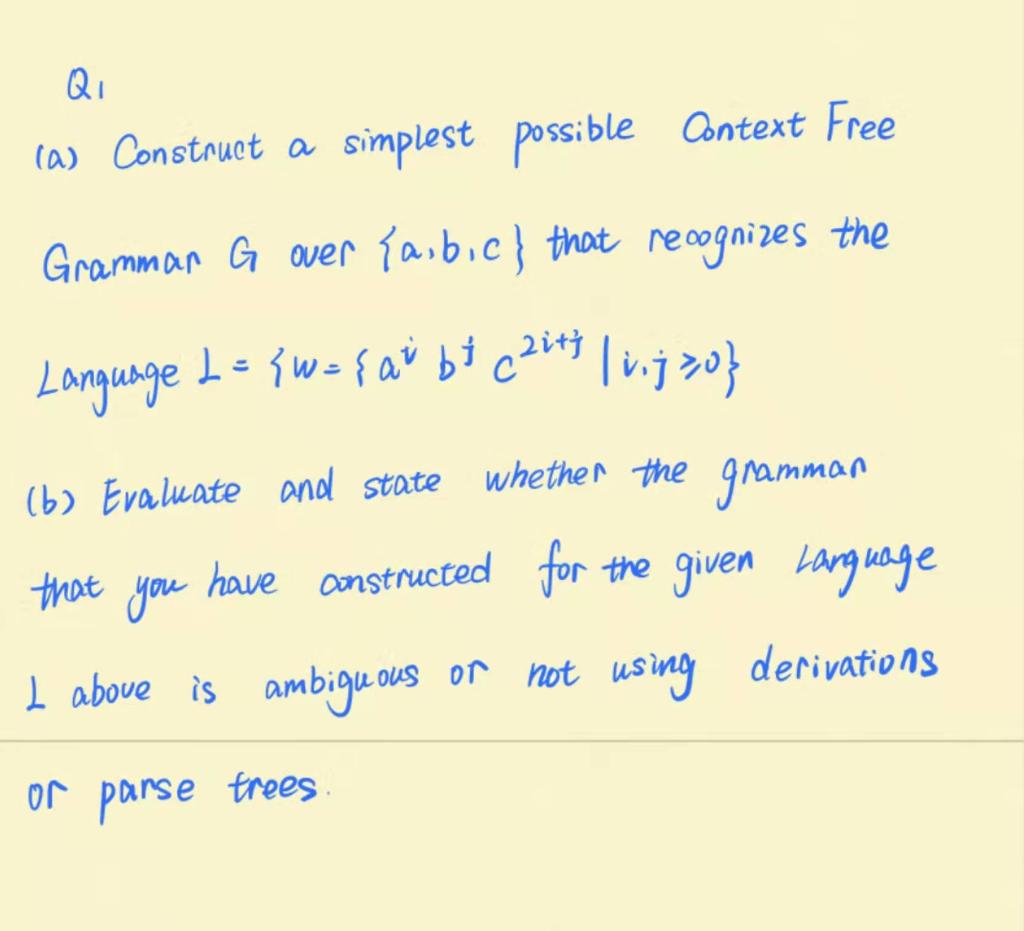 Q1
(a) Construct a simplest possible Context Free
Grammar G over {a,b,c} that recognizes the
Language L = {w = {aⁱ bʲ c²ⁱ⁺ʲ | i,j ⩾0}
(b) Evaluate and state whether the grammar
that you have constructed for the given Language
L above is ambiguous or not using derivations
or parse trees.